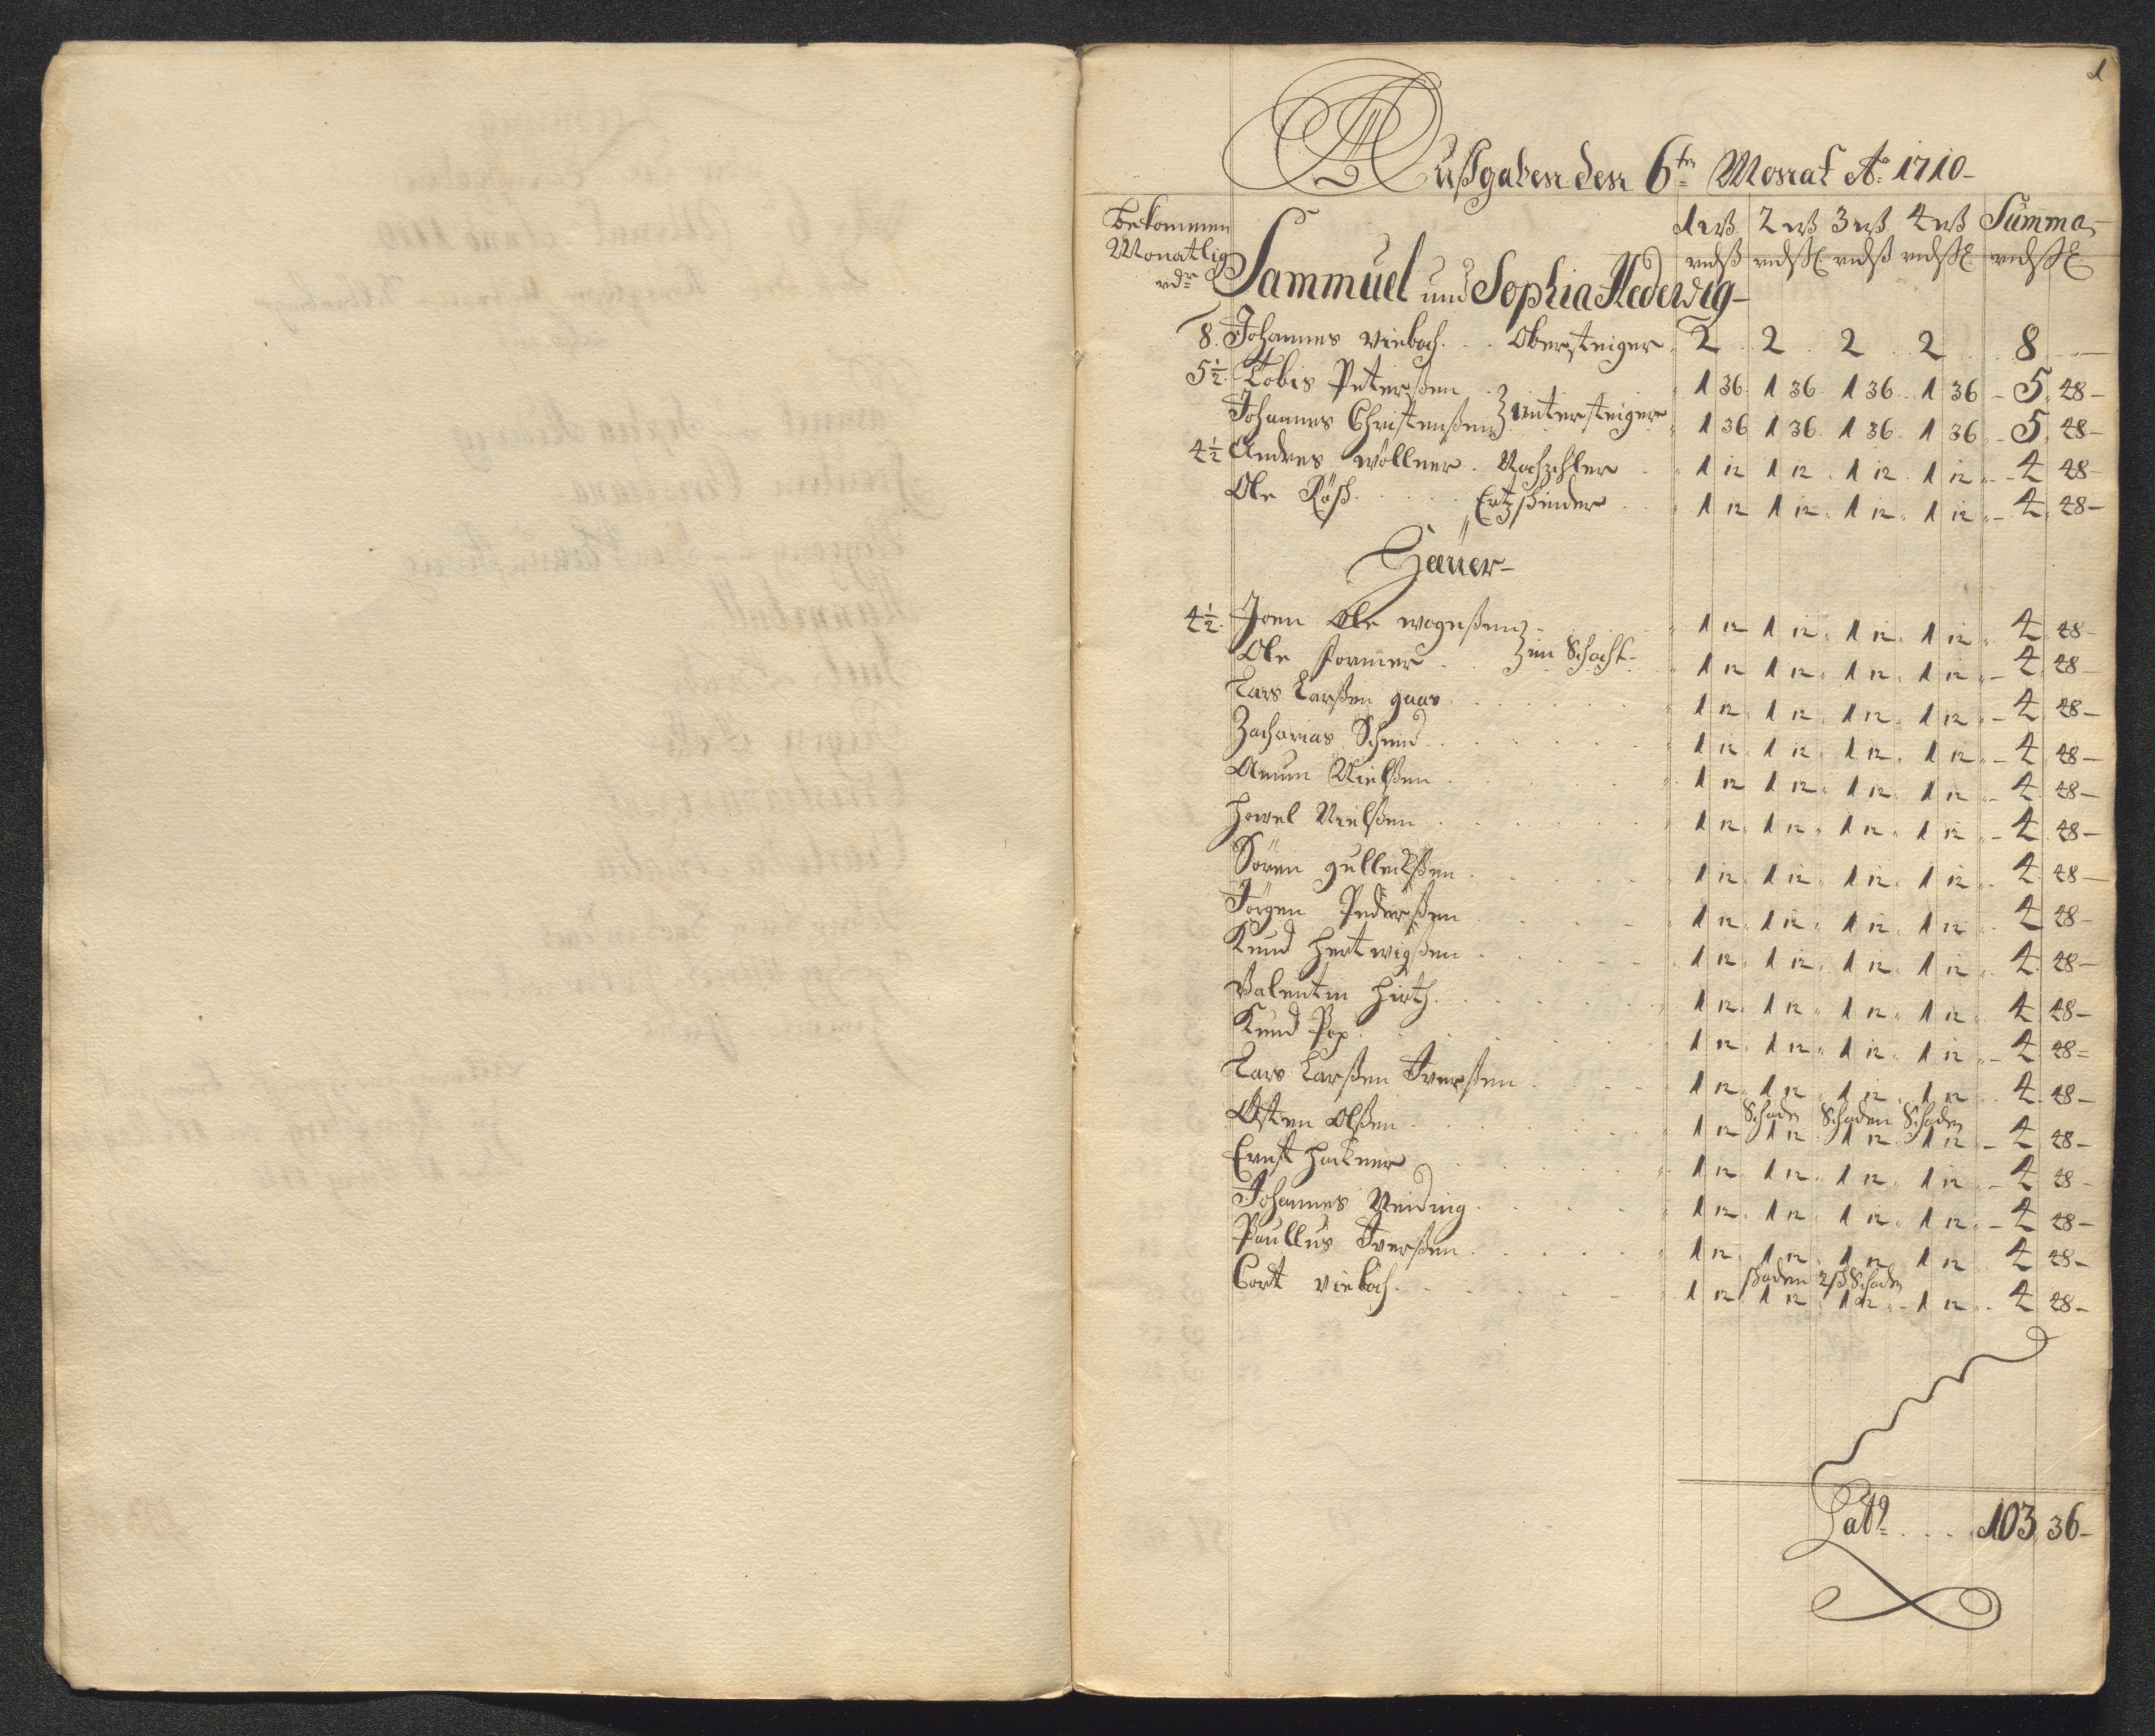 1
Außgaben den 6ten Monat Ao. 1710
bekommen
Monatlig
rdr
Sammuel und Sophia Hedewig
1 2 3 4 Summa
8. Johannes Viebach . . Obersteiger 2 2 2 2 8
5½ Tobis Peterßen 1 36 1 36 1 36 1 36 5 48
Johannes Christenßen Untersteiger 1 36 1 36 1 36 1 36 5 48
4½ Andres Wöllner . Nachzehler 1 12 1 12 1 12 1 12 4 48
Ole Röß . . . Ertzscheider 1 12 1 12 1 12 1 12 4 48
Häuer
4½ Joen Ole 1 12 1 12 1 12 1 12 4 48
Ole Former . . im Schacht 1 12 1 12 1 12 1 12 4 48
Lars Larßen gaas 1 12 1 12 1 12 1 12 4 48
Zacharias Schmid 1 12 1 12 1 12 1 12 4 48
Amun Nielßen 1 12 1 12 1 12 1 12 4 48
Howel Nielßen 1 12 1 12 1 12 1 12 4 48
Sören gulleckßen 1 12 1 12 1 12 1 12 4 48
Jörgen Pederßen 1 12 1 12 1 12 1 12 4 48
Knud Hertwigßen 1 12 1 12 1 12 1 12 4 48
Valentin Hirth 1 12 1 12 1 12 1 12 4 48
Knud Pop 1 12 1 12 1 12 1 12 4 48
Lars Larßen Iverßen 1 12 1 12 1 12 1 12 4 48
Schaden Schaden Schaden
Östen Olßen 1 12 1 12 1 12 1 12 4 48
Ernst Hackner 1 12 1 12 1 12 1 12 4 48
Johannes Neiding 1 12 1 12 1 12 1 12 4 48
Paullus Iverßen 1 12 1 12 1 12 1 12 4 48
Schaden Schaden
Cort Viebach 1 12 1 12 1 12 1 12 4 48
Latq . . . 103 36